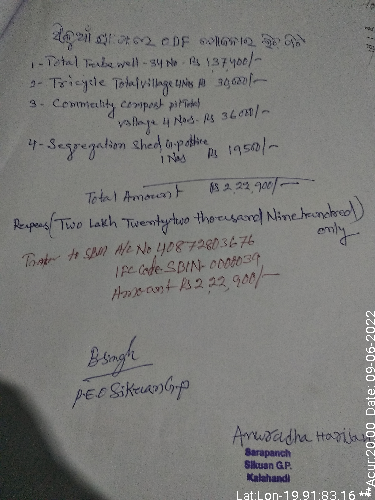 ସିକୁଆଁ ODF
1- Total Tubewell - 34 No - Rs 137400/-
2- Tricycle Total village 4 Nos Rs 30,000/-
3 - Commality compost pit Total
village 4 Nos - Rs 36000/-
4- Segregation Shed in pattive
1 Nos Rs 19500/-
Total Amount Rs 2,22,900/-
Rupees (Two Lakh Twentytwo thousand Nine hundred)
only
to SBM A/c No 40872803676
IFC Code SBIN-0000039
Amount Rs 2,22,900/-
BSingh
P.E.O Sikuan G.P
Anuradha Harijan
Sarapanch
Sikuan G.P.
Kalahandi
Lat:Lon-19.91:83.16 **Acur:20.00 Date: 09-06-2022